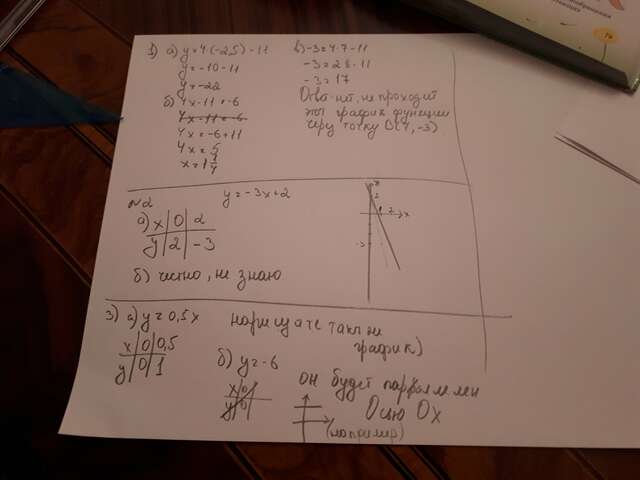 1) а) y=4·(-2,5)-11
y=-10-11
y=-22
б) 4x-11=-6
4x-11=-6
4x=-6+11
4x=5
x=1 1/4
в) -3=4·7-11
-3=28-11
-3=17
Ответ: нет, не проходит
этот график функции
через точку B(7,-3)
№2 y=-3x+2
а) x | 0 | 2
y | 2 | -3
x
б) честно, не знаю
3) а) y=0,5x нарисуйте так же
график)
x | 0 | 0,5
y | 0 | 1
б) y=-6
x | 0
y | 0
он будет параллелен
Осью Ox
(например)